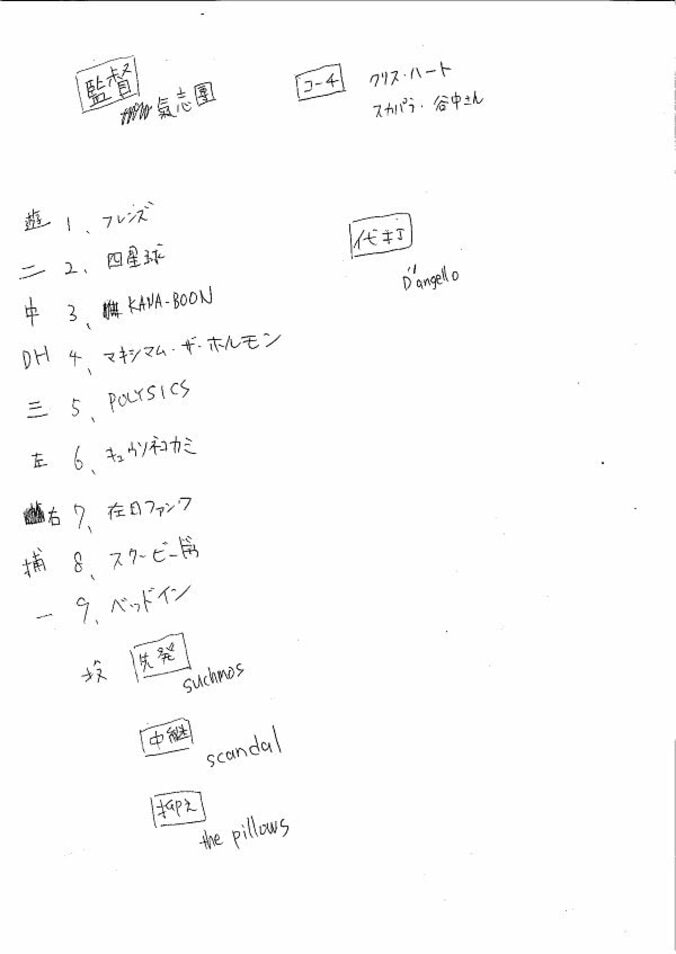 監督
氣志團
コーチ
クリス・ハート
スカパラ・谷中さん
遊 1、フレンズ
二 2、四星球
中 3、KANA-BOON
DH 4、マキシマム・ザ・ホルモン
三 5、POLYSICS
左 6、キュウソネコカミ
右 7、在日ファンク
捕 8、スクービードゥ
一 9、ベッドイン
代打
D'angello
投 先発
suchmos
中継
scandal
抑え
the pillows